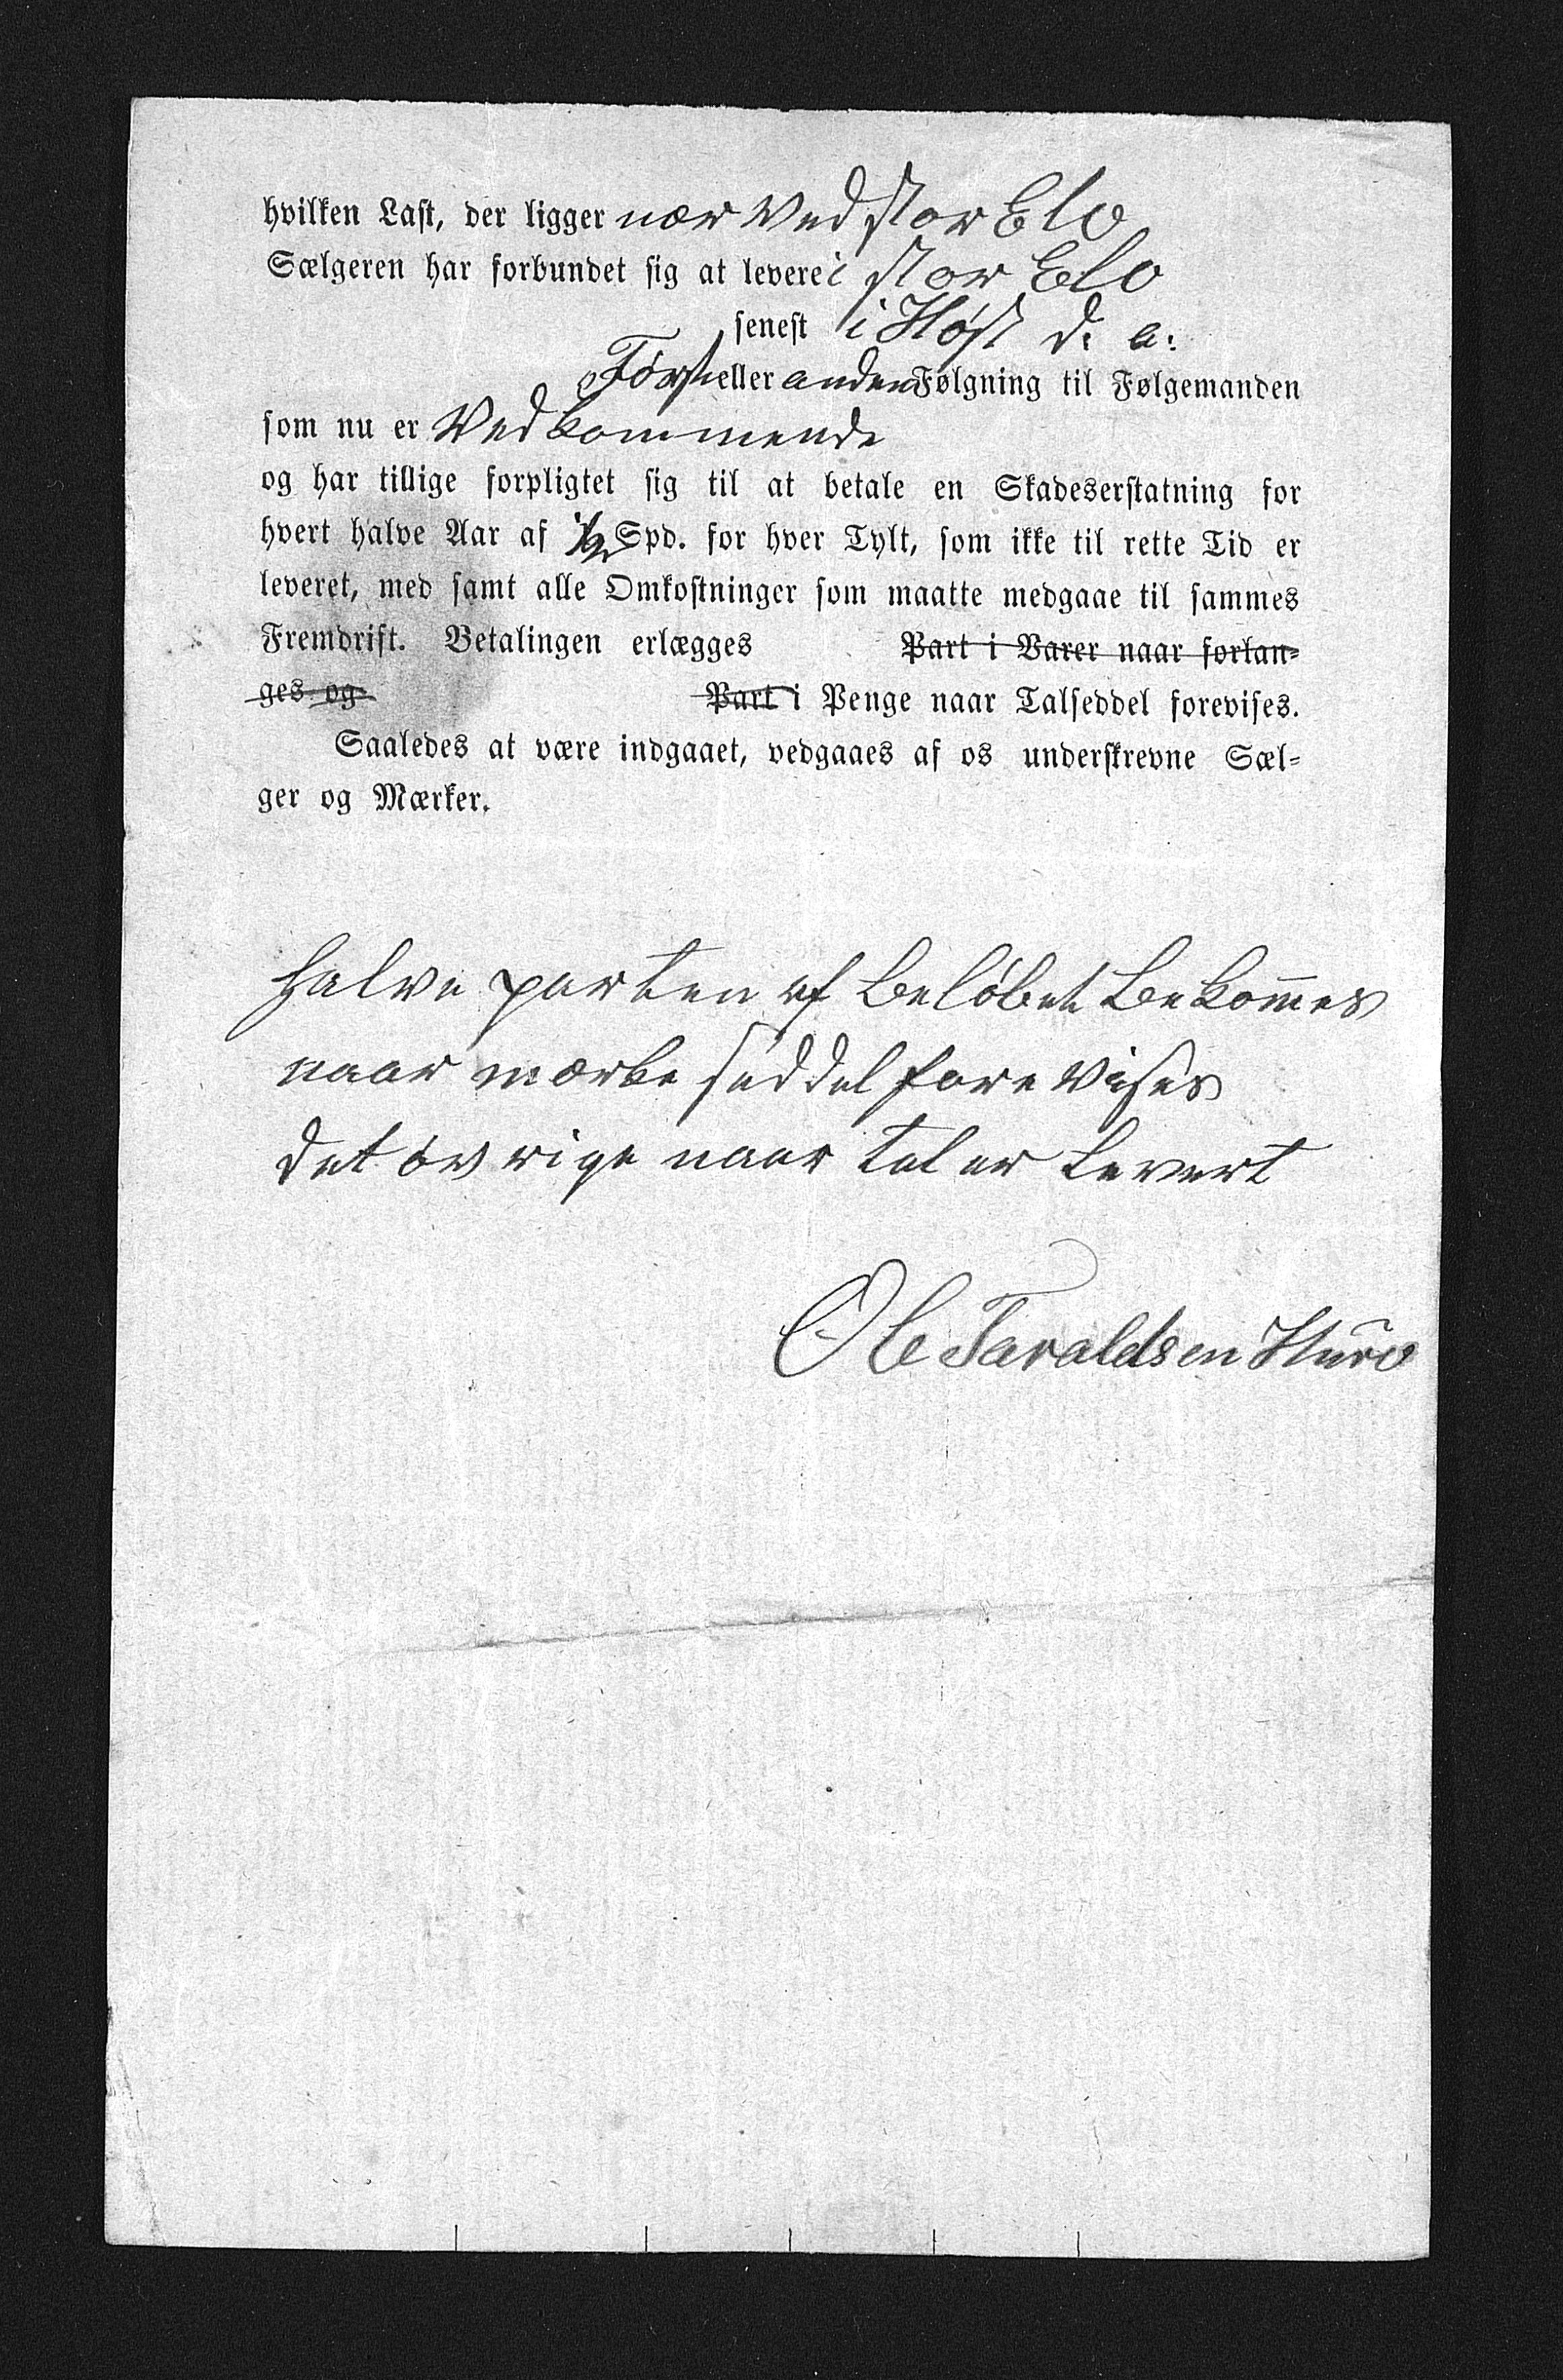 hvilken Last, der ligger nær Ved stor Elv
Sælgeren har forbundet sig at levere i stor Elv
senest i Høst d. a:
Første eller anden Følgning til Følgemanden
som nu er Vedkommende
og har tillige forpligtet sig til at betale en Skadeserstatning for
hvert halve Aar af ½ Spd. for hver Tylt, som ikke til rette Tid er
leveret, med samt alle Omkostninger som maatte medgaae til sammes
Fremdrift. Betalingen erlægges Part i Varer naar forlan-
ges og Part i Penge naar Talseddel forevises.
Saaledes at være indgaaet, vedgaaes af os underskrevne Sæl-
ger og Mærker.
Halve parten af Beløbet Bekom̄es
naar mærke seddel fore Vises
det øvrige naar tal er Levert
Ole Taraldsen